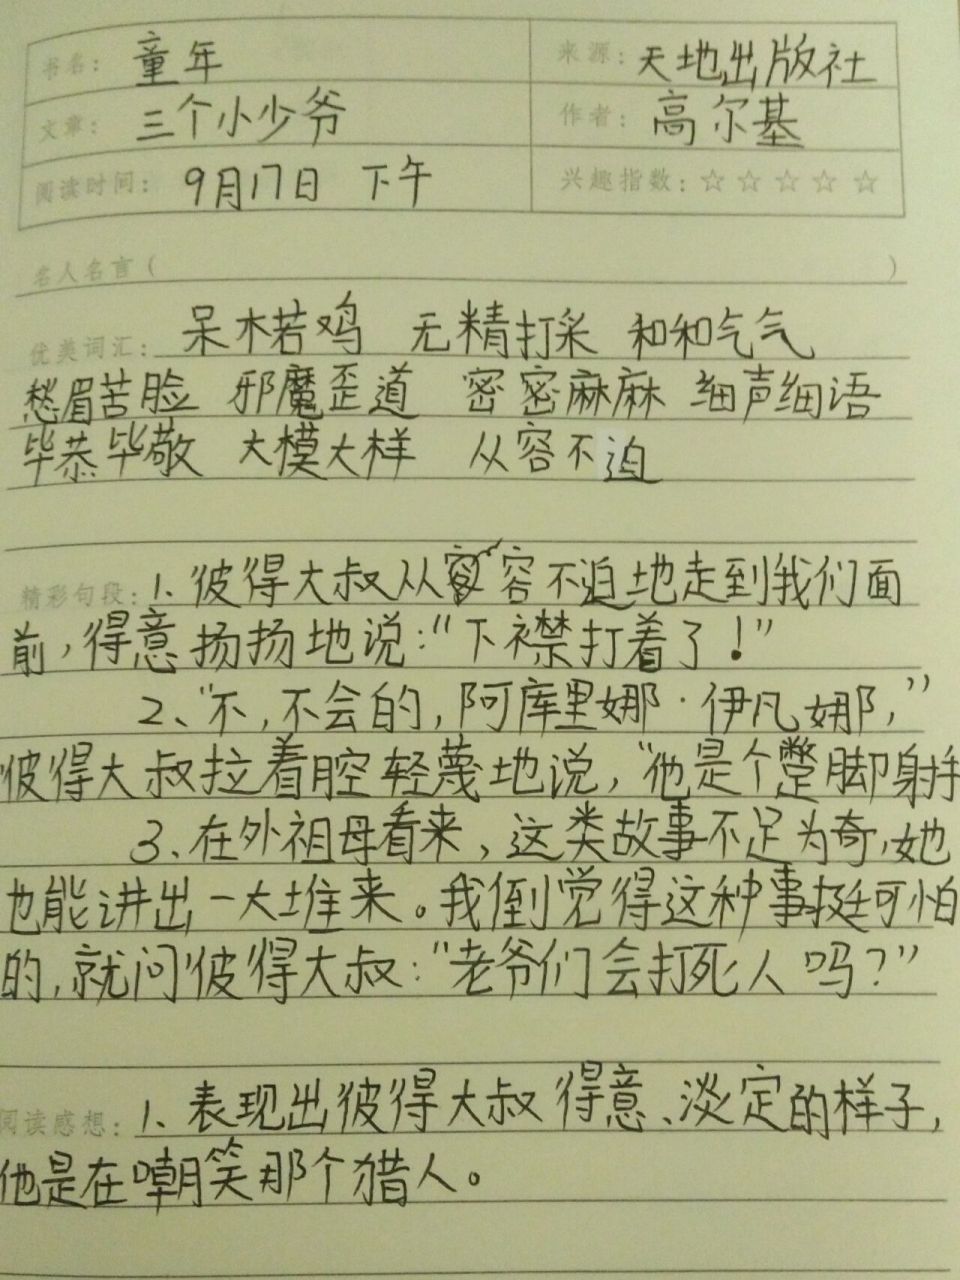 书名: 童年 来源: 天地出版社
文章: 三个小少爷 作者: 高尔基
阅读时间: 9月17日 下午 兴趣指数: ☆☆☆☆☆
名人名言 ( )
优美词汇: 呆木若鸡 无精打采 和和气气
愁眉苦脸 邪魔歪道 密密麻麻 细声细语
毕恭毕敬 大模大样 从容不迫
精彩句段: 1. 彼得大叔从容不迫地走到我们面
前,得意扬扬地说:“下襟打着了!”
2、“不,不会的,阿库里娜·伊凡娜,”
彼得大叔拉着腔轻蔑地说,“他是个蹩脚射手
3、在外祖母看来,这类故事不足为奇,她
也能讲出一大堆来。我倒觉得这种事挺可怕
的,就问彼得大叔:“老爷们会打死人吗?”
阅读感想: 1、表现出彼得大叔得意、淡定的样子,
他是在嘲笑那个猎人。